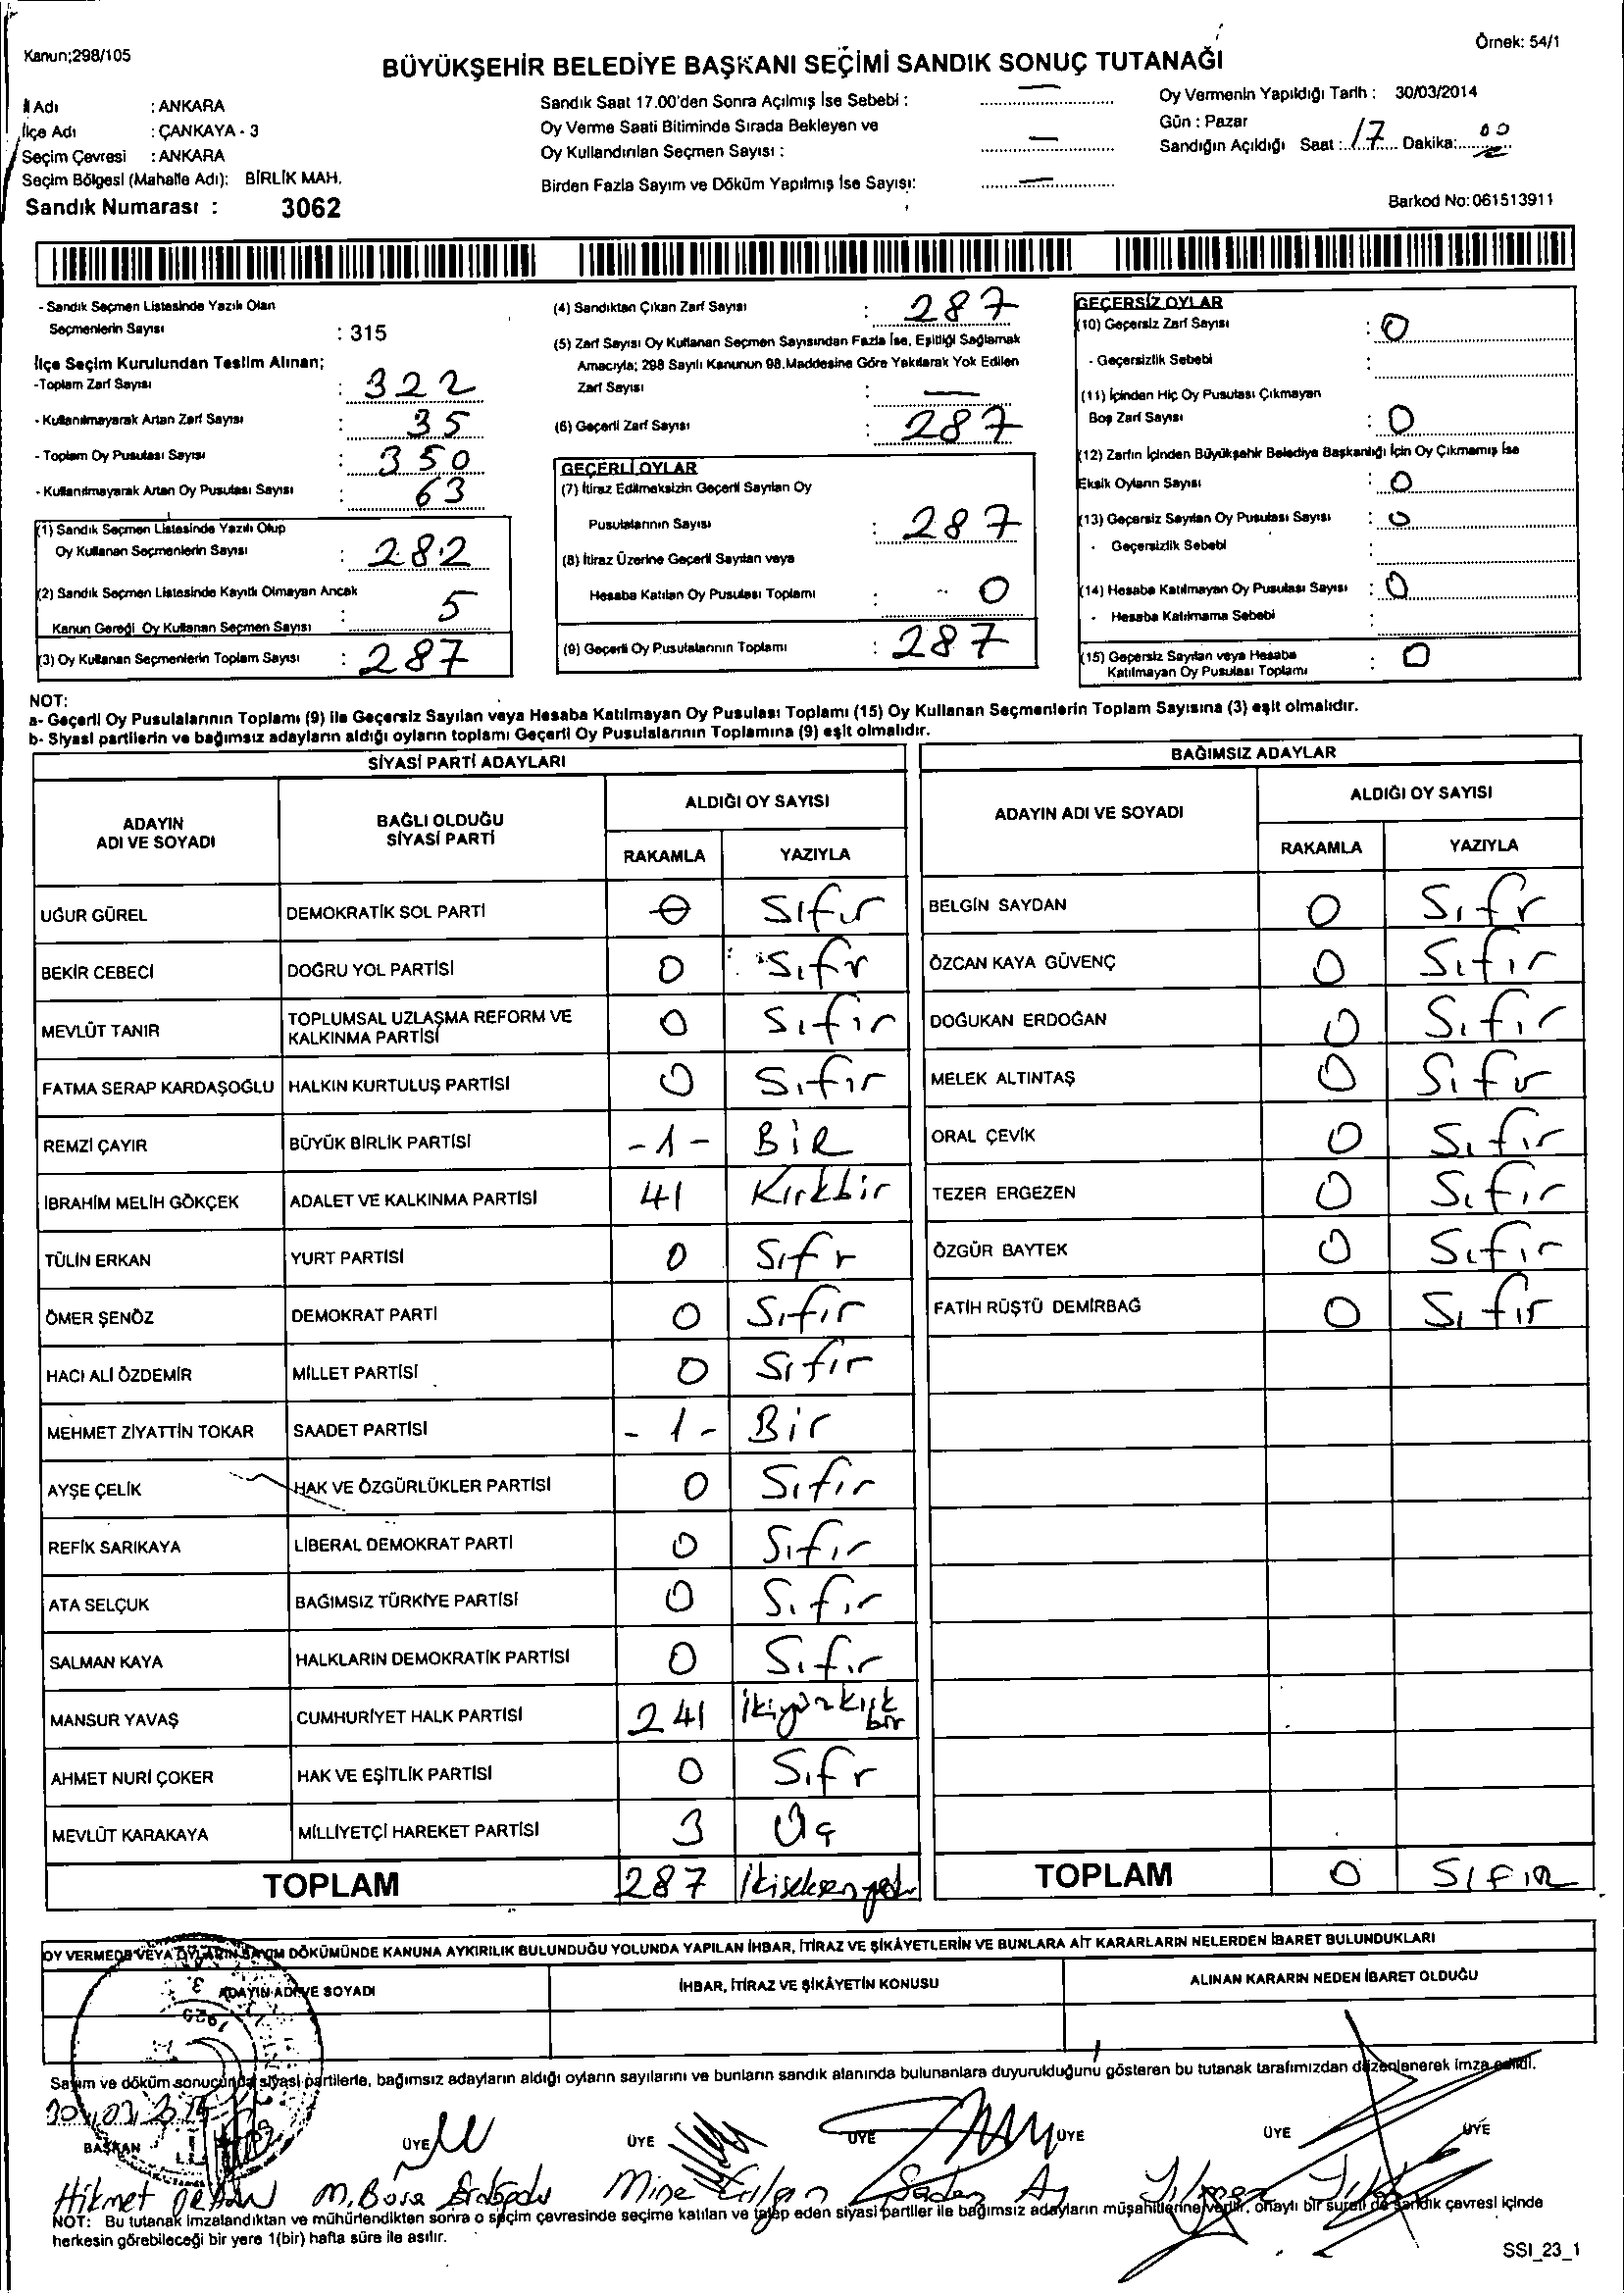 Kanun;298/105
Örnek: 54/1
BÜYÜKŞEHİR BELEDİYE BAŞKANI SEÇİMİ SANDIK SONUÇ TUTANAĞI
İl Adı : ANKARA
İlçe Adı : ÇANKAYA - 3
Seçim Çevresi : ANKARA
Seçim Bölgesi (Mahalle Adı): BİRLİK MAH.
Sandık Numarası : 3062
Sandık Saat 17.00'den Sonra Açılmış İse Sebebi : —
Oy Verme Saati Bitiminde Sırada Bekleyen ve
Oy Kullandırılan Seçmen Sayısı : —
Birden Fazla Sayım ve Döküm Yapılmış İse Sayısı: —
Oy Vermenin Yapıldığı Tarih : 30/03/2014
Gün : Pazar
Sandığın Açıldığı Saat : 17 Dakika: 00
Barkod No: 061513911
- Sandık Seçmen Listesinde Yazılı Olan
Seçmenlerin Sayısı : 315
İlçe Seçim Kurulundan Teslim Alınan;
-Toplam Zarf Sayısı : 322
- Kullanılmayarak Artan Zarf Sayısı : 35
- Toplam Oy Pusulası Sayısı : 350
- Kullanılmayarak Artan Oy Pusulası Sayısı : 63
(1) Sandık Seçmen Listesinde Yazılı Olup
Oy Kullanan Seçmenlerin Sayısı : 282
(2) Sandık Seçmen Listesinde Kayıtlı Olmayan Ancak
Kanun Gereği Oy Kullanan Seçmen Sayısı : 5
(3) Oy Kullanan Seçmenlerin Toplam Sayısı : 287
(4) Sandıktan Çıkan Zarf Sayısı : 287
(5) Zarf Sayısı Oy Kullanan Seçmen Sayısından Fazla İse, Eşitliği Sağlamak
Amacıyla; 298 Sayılı Kanunun 98.Maddesine Göre Yakılarak Yok Edilen
Zarf Sayısı : —
(6) Geçerli Zarf Sayısı : 287
GEÇERLİ OYLAR
(7) İtiraz Edilmeksizin Geçerli Sayılan Oy
Pusulalarının Sayısı : 287
(8) İtiraz Üzerine Geçerli Sayılan veya
Hesaba Katılan Oy Pusulası Toplamı : 0
(9) Geçerli Oy Pusulalarının Toplamı : 287
GEÇERSİZ OYLAR
(10) Geçersiz Zarf Sayısı : 0
- Geçersizlik Sebebi :
(11) İçinden Hiç Oy Pusulası Çıkmayan
Boş Zarf Sayısı : 0
(12) Zarfın İçinden Büyükşehir Belediye Başkanlığı İçin Oy Çıkmamış İse
Eksik Oyların Sayısı : 0
(13) Geçersiz Sayılan Oy Pusulası Sayısı : 0
- Geçersizlik Sebebi :
(14) Hesaba Katılmayan Oy Pusulası Sayısı : 0
- Hesaba Katılmama Sebebi :
(15) Geçersiz Sayılan veya Hesaba
Katılmayan Oy Pusulası Toplamı : 0
NOT:
a- Geçerli Oy Pusulalarının Toplamı (9) ile Geçersiz Sayılan veya Hesaba Katılmayan Oy Pusulası Toplamı (15) Oy Kullanan Seçmenlerin Toplam Sayısına (3) eşit olmalıdır.
b- Siyasi partilerin ve bağımsız adayların aldığı oyların toplamı Geçerli Oy Pusulalarının Toplamına (9) eşit olmalıdır.
SİYASİ PARTİ ADAYLARI
ADAYIN ADI VE SOYADI BAĞLI OLDUĞU SİYASİ PARTİ ALDIĞI OY SAYISI
RAKAMLA YAZIYLA
UĞUR GÜREL DEMOKRATİK SOL PARTİ 0 Sıfır
BEKİR CEBECİ DOĞRU YOL PARTİSİ 0 Sıfr
MEVLÜT TANIR TOPLUMSAL UZLAŞMA REFORM VE KALKINMA PARTİSİ 0 Sıfır
FATMA SERAP KARDAŞOĞLU HALKIN KURTULUŞ PARTİSİ 0 Sıfır
REMZİ ÇAYIR BÜYÜK BİRLİK PARTİSİ -1- BİR
İBRAHİM MELİH GÖKÇEK ADALET VE KALKINMA PARTİSİ 41 Kırkbir
TÜLİN ERKAN YURT PARTİSİ 0 Sıfr
ÖMER ŞENÖZ DEMOKRAT PARTİ 0 Sıfır
HACI ALİ ÖZDEMİR MİLLET PARTİSİ 0 Sıfır
MEHMET ZİYATTİN TOKAR SAADET PARTİSİ -1- Bir
AYŞE ÇELİK HAK VE ÖZGÜRLÜKLER PARTİSİ 0 Sıfır
REFİK SARIKAYA LİBERAL DEMOKRAT PARTİ 0 Sıfır
ATA SELÇUK BAĞIMSIZ TÜRKİYE PARTİSİ 0 Sıfır
SALMAN KAYA HALKLARIN DEMOKRATİK PARTİSİ 0 Sıfır
MANSUR YAVAŞ CUMHURİYET HALK PARTİSİ 241 İkiyüzkırk bir
AHMET NURİ ÇOKER HAK VE EŞİTLİK PARTİSİ 0 Sıfr
MEVLÜT KARAKAYA MİLLİYETÇİ HAREKET PARTİSİ 3 Üç
TOPLAM 287
BAĞIMSIZ ADAYLAR
ADAYIN ADI VE SOYADI ALDIĞI OY SAYISI
RAKAMLA YAZIYLA
BELGİN SAYDAN 0 Sıfr
ÖZCAN KAYA GÜVENÇ 0 Sıfır
DOĞUKAN ERDOĞAN 0 Sıfır
MELEK ALTINTAŞ 0 Sıfır
ORAL ÇEVİK 0 Sıfır
TEZER ERGEZEN 0 Sıfır
ÖZGÜR BAYTEK 0 Sıfır
FATİH RÜŞTÜ DEMİRBAĞ 0 Sıfır
TOPLAM 0 SIFIR
OY VERMEDE VEYA OYLARIN SAYIM DÖKÜMÜNDE KANUNA AYKIRILIK BULUNDUĞU YOLUNDA YAPILAN İHBAR, İTİRAZ VE ŞİKÂYETLERİN VE BUNLARA AİT KARARLARIN NELERDEN İBARET BULUNDUKLARI
ADAYIN ADI VE SOYADI İHBAR, İTİRAZ VE ŞİKÂYETİN KONUSU ALINAN KARARIN NEDEN İBARET OLDUĞU
Sayım ve döküm sonucunda siyasi partilerle, bağımsız adayların aldığı oyların sayılarını ve bunların sandık alanında bulunanlara duyurulduğunu gösteren bu tutanak tarafımızdan düzenlenerek imza edildi.
BAŞKAN ÜYE ÜYE ÜYE ÜYE ÜYE ÜYE
Hikmet M. Bora Mine
NOT: Bu tutanak imzalandıktan ve mühürlendikten sonra o seçim çevresinde seçime katılan ve talep eden siyasi partiler ile bağımsız adayların müşahitlerine verilir, onaylı bir sureti de sandık çevresi içinde
herkesin görebileceği bir yere 1(bir) hafta süre ile asılır.
SSI_23_1